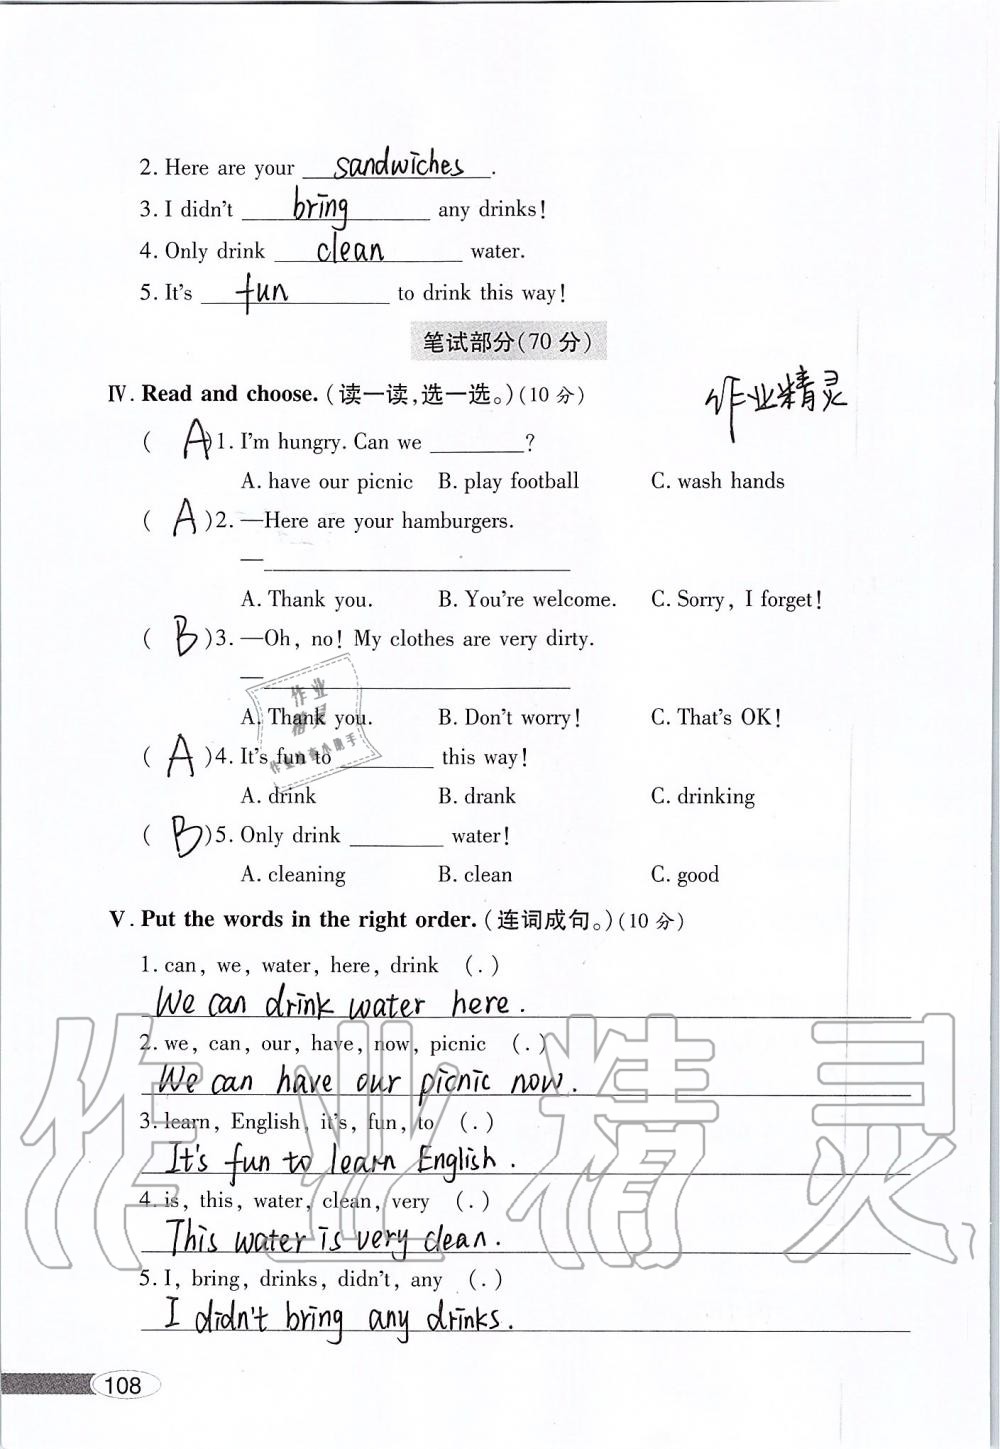 2. Here are your sandwiches.
3. I didn't bring any drinks!
4. Only drink clean water.
5. It's fun to drink this way!
笔试部分(70 分)
Ⅳ. Read and choose.(读一读,选一选。)(10 分)
作业精灵
( A )1. I'm hungry. Can we ________?
A. have our picnic B. play football C. wash hands
( A )2. —Here are your hamburgers.
—________
A. Thank you. B. You're welcome. C. Sorry, I forget!
( B )3. —Oh, no! My clothes are very dirty.
—________
作业
精灵
作业检查小助手
A. Thank you. B. Don't worry! C. That's OK!
( A )4. It's fun to ________ this way!
A. drink B. drank C. drinking
( B )5. Only drink ________ water!
A. cleaning B. clean C. good
Ⅴ. Put the words in the right order.(连词成句。)(10 分)
1. can, we, water, here, drink (.)
We can drink water here.
2. we, can, our, have, now, picnic (.)
We can have our picnic now.
3. learn, English, it's, fun, to (.)
It's fun to learn English.
4. is, this, water, clean, very (.)
This water is very clean.
5. I, bring, drinks, didn't, any (.)
I didn't bring any drinks.
作业精灵
108